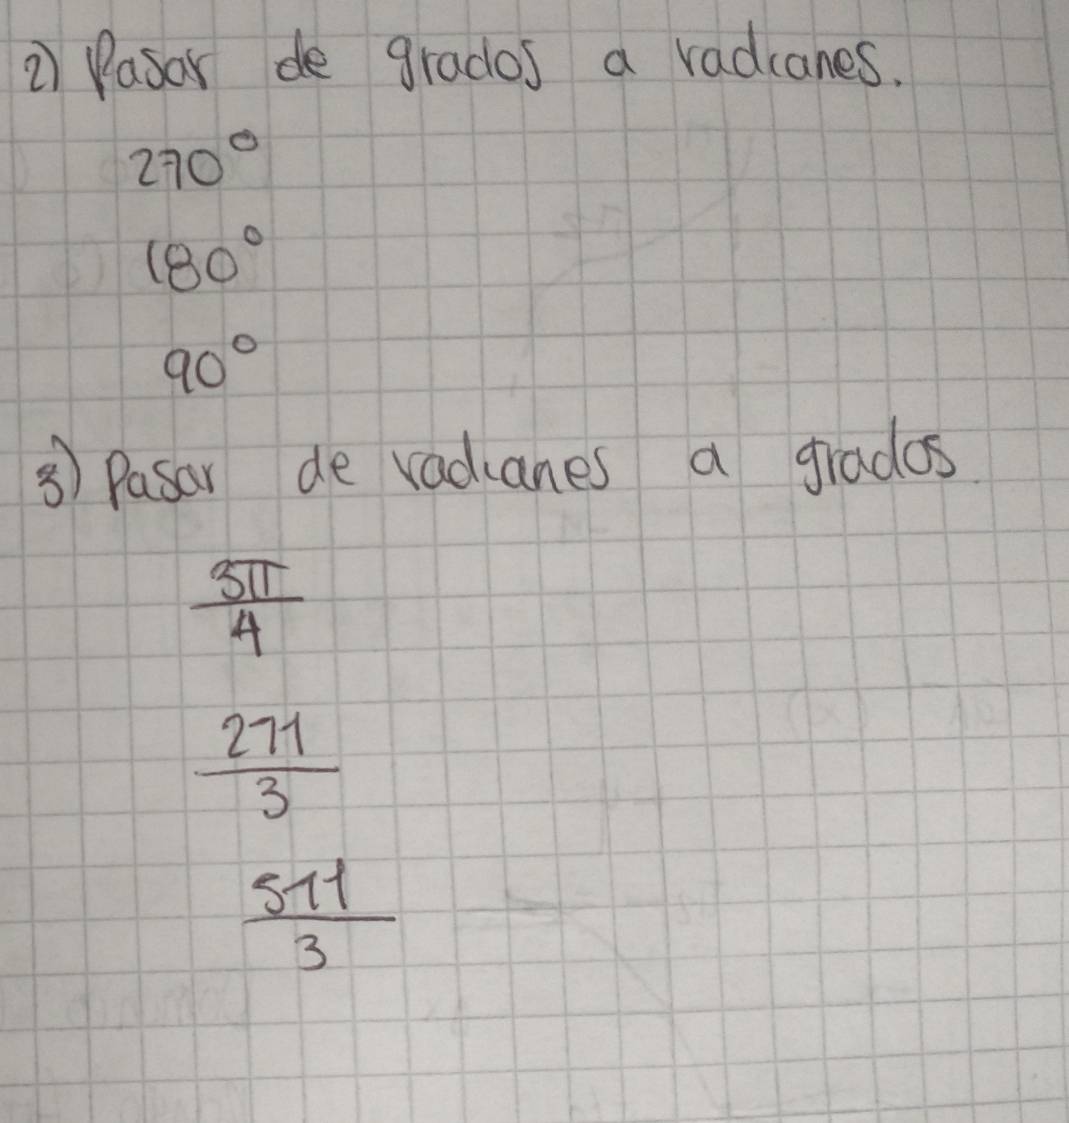 2) Pasar de grados a radianes.
270°
180°
90°
3) Pasar de radianes a grados
3π
4
2π
3
5π
3